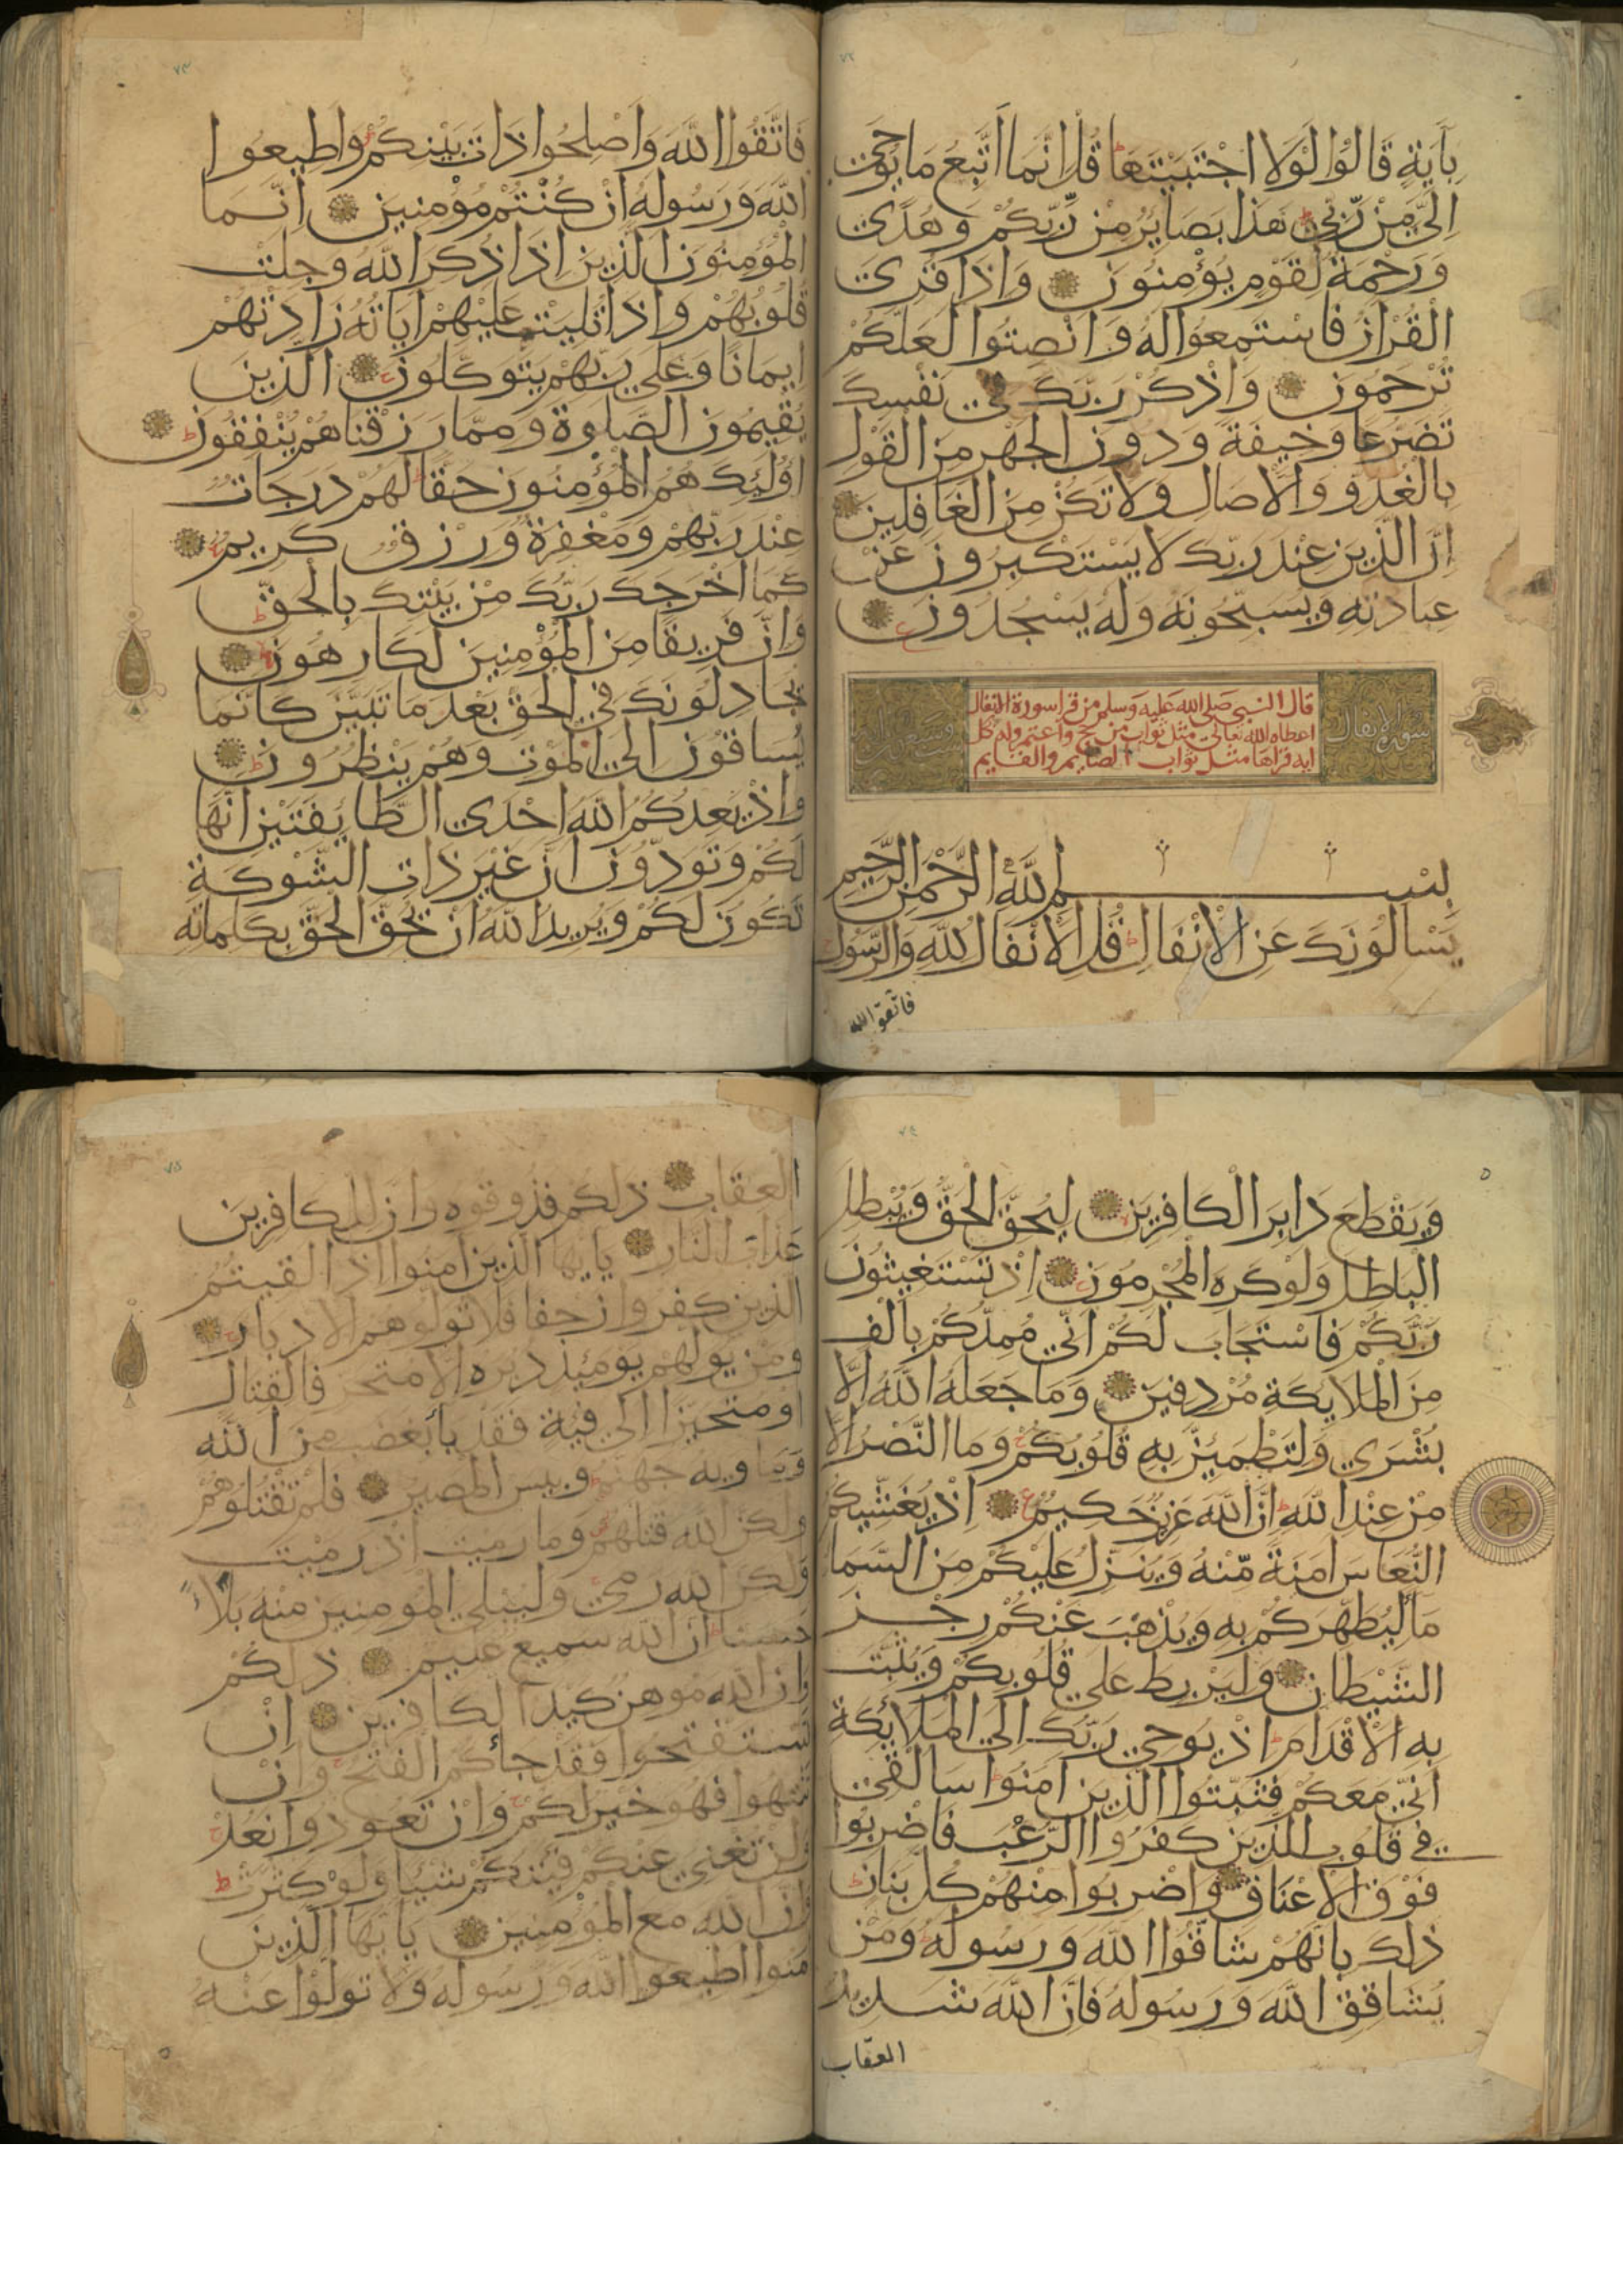 ٧٢
بِآيَةٍ قَالُوا لَوْلَا اجْتَبَيْتَهَا ط قُلْ اِنَّمَا اَتَّبِعُ مَا يُوحَى
اِلَيَّ مِنْ رَبِّي ط هَذَا بَصَايِرُ مِنْ رَبِّكُمْ وَهُدًى
وَرَحْمَةٌ لِقَوْمٍ يُؤْمِنُونَ وَاِذَا قُرِئَ
الْقُرْآنُ فَاسْتَمِعُوا لَهُ وَاَنْصِتُوا لَعَلَّكُمْ
تُرْحَمُونَ وَاذْكُرْ رَبَّكَ فِي نَفْسِكَ
تَضَرُّعًا وَخِيفَةً وَدُونَ الْجَهْرِ مِنَ الْقَوْلِ
بِالْغُدُوِّ وَالْآصَالِ وَلَا تَكُنْ مِنَ الْغَافِلِينَ
اِنَّ الَّذِينَ عِنْدَ رَبِّكَ لَا يَسْتَكْبِرُونَ عَنْ
عِبَادَتِهِ وَيُسَبِّحُونَهُ وَلَهُ يَسْجُدُونَ ع
سورة الانفال
قال النبي صلى الله عليه وسلم من قرا سورة الانفال
اعطاه الله تعالى مثل ثواب من حج واعتمر وله بكل
ايه قراها مثل ثواب الصايم والقايم
بسم الله الرَّحْمَنِ الرَّحِيمِ
يَسْأَلُونَكَ عَنِ الْأَنْفَالِ ط قُلِ الْأَنْفَالُ لِلَّهِ وَالرَّسُولِ ج
فاتقوا الله
٧٣
فَاتَّقُوا اللَّهَ وَاَصْلِحُوا ذَاتَ بَيْنِكُمْ وَاَطِيعُوا
اللَّهَ وَرَسُولَهُ اِنْ كُنْتُمْ مُؤْمِنِينَ اِنَّمَا
الْمُؤْمِنُونَ الَّذِينَ اِذَا ذُكِرَ اللَّهُ وَجِلَتْ
قُلُوبُهُمْ وَاِذَا تُلِيَتْ عَلَيْهِمْ آيَاتُهُ زَادَتْهُمْ
اِيمَانًا وَعَلَى رَبِّهِمْ يَتَوَكَّلُونَ ج الَّذِينَ
يُقِيمُونَ الصَّلَوةَ وَمِمَّا رَزَقْنَاهُمْ يُنْفِقُونَ ط
اُولَئِكَ هُمُ الْمُؤْمِنُونَ حَقًّا ط لَهُمْ دَرَجَاتٌ
عِنْدَ رَبِّهِمْ وَمَغْفِرَةٌ وَرِزْقٌ كَرِيمٌ ج
كَمَا اَخْرَجَكَ رَبُّكَ مِنْ بَيْتِكَ بِالْحَقِّ ط
وَاِنَّ فَرِيقًا مِنَ الْمُؤْمِنِينَ لَكَارِهُونَ
يُجَادِلُونَكَ فِي الْحَقِّ بَعْدَ مَا تَبَيَّنَ كَاَنَّمَا
يُسَاقُونَ اِلَى الْمَوْتِ وَهُمْ يَنْظُرُونَ ط
وَاِذْ يَعِدُكُمُ اللَّهُ اِحْدَى الطَّايِفَتَيْنِ اَنَّهَا
لَكُمْ وَتَوَدُّونَ اَنَّ غَيْرَ ذَاتِ الشَّوْكَةِ
تَكُونُ لَكُمْ وَيُرِيدُ اللَّهُ اَنْ يُحِقَّ الْحَقَّ بِكَلِمَاتِهِ
٧٤
وَيَقْطَعَ دَابِرَ الْكَافِرِينَ لِيُحِقَّ الْحَقَّ وَيُبْطِلَ
الْبَاطِلَ وَلَوْ كَرِهَ الْمُجْرِمُونَ ج اِذْ تَسْتَغِيثُونَ
رَبَّكُمْ فَاسْتَجَابَ لَكُمْ اَنِّي مُمِدُّكُمْ بِاَلْفٍ
مِنَ الْمَلَايِكَةِ مُرْدِفِينَ وَمَا جَعَلَهُ اللَّهُ اِلَّا
بُشْرَى وَلِتَطْمَئِنَّ بِهِ قُلُوبُكُمْ ج وَمَا النَّصْرُ اِلَّا
مِنْ عِنْدِ اللَّهِ ط اِنَّ اللَّهَ عَزِيزٌ حَكِيمٌ ع اِذْ يُغَشِّيكُمُ
النُّعَاسَ اَمَنَةً مِنْهُ وَيُنَزِّلُ عَلَيْكُمْ مِنَ السَّمَا
مَاءً لِيُطَهِّرَكُمْ بِهِ وَيُذْهِبَ عَنْكُمْ رِجْزَ
الشَّيْطَانِ وَلِيَرْبِطَ عَلَى قُلُوبِكُمْ وَيُثَبِّتَ
بِهِ الْاَقْدَامَ ط اِذْ يُوحِي رَبُّكَ اِلَى الْمَلَائِكَةِ
اَنِّي مَعَكُمْ فَثَبِّتُوا الَّذِينَ آمَنُوا ط سَاُلْقِي
فِي قُلُوبِ الَّذِينَ كَفَرُوا الرُّعْبَ فَاضْرِبُوا
فَوْقَ الْاَعْنَاقِ وَاضْرِبُوا مِنْهُمْ كُلَّ بَنَانٍ ط
ذَلِكَ بِاَنَّهُمْ شَاقُّوا اللَّهَ وَرَسُولَهُ ج وَمَنْ
يُشَاقِقِ اللَّهَ وَرَسُولَهُ فَاِنَّ اللَّهَ شَدِيدُ
العقاب
٧٥
الْعِقَابِ ذَلِكُمْ فَذُوقُوهُ وَاَنَّ لِلْكَافِرِينَ
عَذَابَ النَّارِ يَا يُّهَا الَّذِينَ آمَنُوا اِذَا لَقِيتُمُ
الَّذِينَ كَفَرُوا زَحْفًا فَلَا تُوَلُّوهُمُ الْاَدْبَارَ ج
وَمَنْ يُوَلِّهِمْ يَوْمَئِذٍ دُبُرَهُ اِلَّا مُتَحَرِّفًا لِقِتَالٍ
اَوْ مُتَحَيِّزًا اِلَى فِيَةٍ فَقَدْ بَاءَ بِغَضَبٍ مِنَ اللَّهِ
وَمَاْوَيهُ جَهَنَّمُ ط وَبِيسَ الْمَصِيرُ فَلَمْ تَقْتُلُوهُمْ
وَلَكِنَّ اللَّهَ قَتَلَهُمْ وَمَا رَمَيْتَ اِذْ رَمَيْتَ
وَلَكِنَّ اللَّهَ رَمَى ج وَلِيُبْلِيَ الْمُؤْمِنِينَ مِنْهُ بَلَاءً
حَسَنًا ط اِنَّ اللَّهَ سَمِيعٌ عَلِيمٌ ذَلِكُمْ
وَاَنَّ اللَّهَ مُوهِنُ كَيْدِ الْكَافِرِينَ اِنْ
تَسْتَفْتِحُوا فَقَدْ جَاءَكُمُ الْفَتْحُ ج وَاِنْ
تَنْتَهُوا فَهُوَ خَيْرٌ لَكُمْ ج وَاِنْ تَعُودُوا نَعُدْ ج
وَلَنْ تُغْنِيَ عَنْكُمْ فِئَتُكُمْ شَيْئًا وَلَوْ كَثُرَتْ ط
وَاَنَّ اللَّهَ مَعَ الْمُؤْمِنِينَ يَا يُّهَا الَّذِينَ
آمَنُوا اَطِيعُوا اللَّهَ وَرَسُولَهُ وَلَا تَوَلَّوْا عَنْهُ